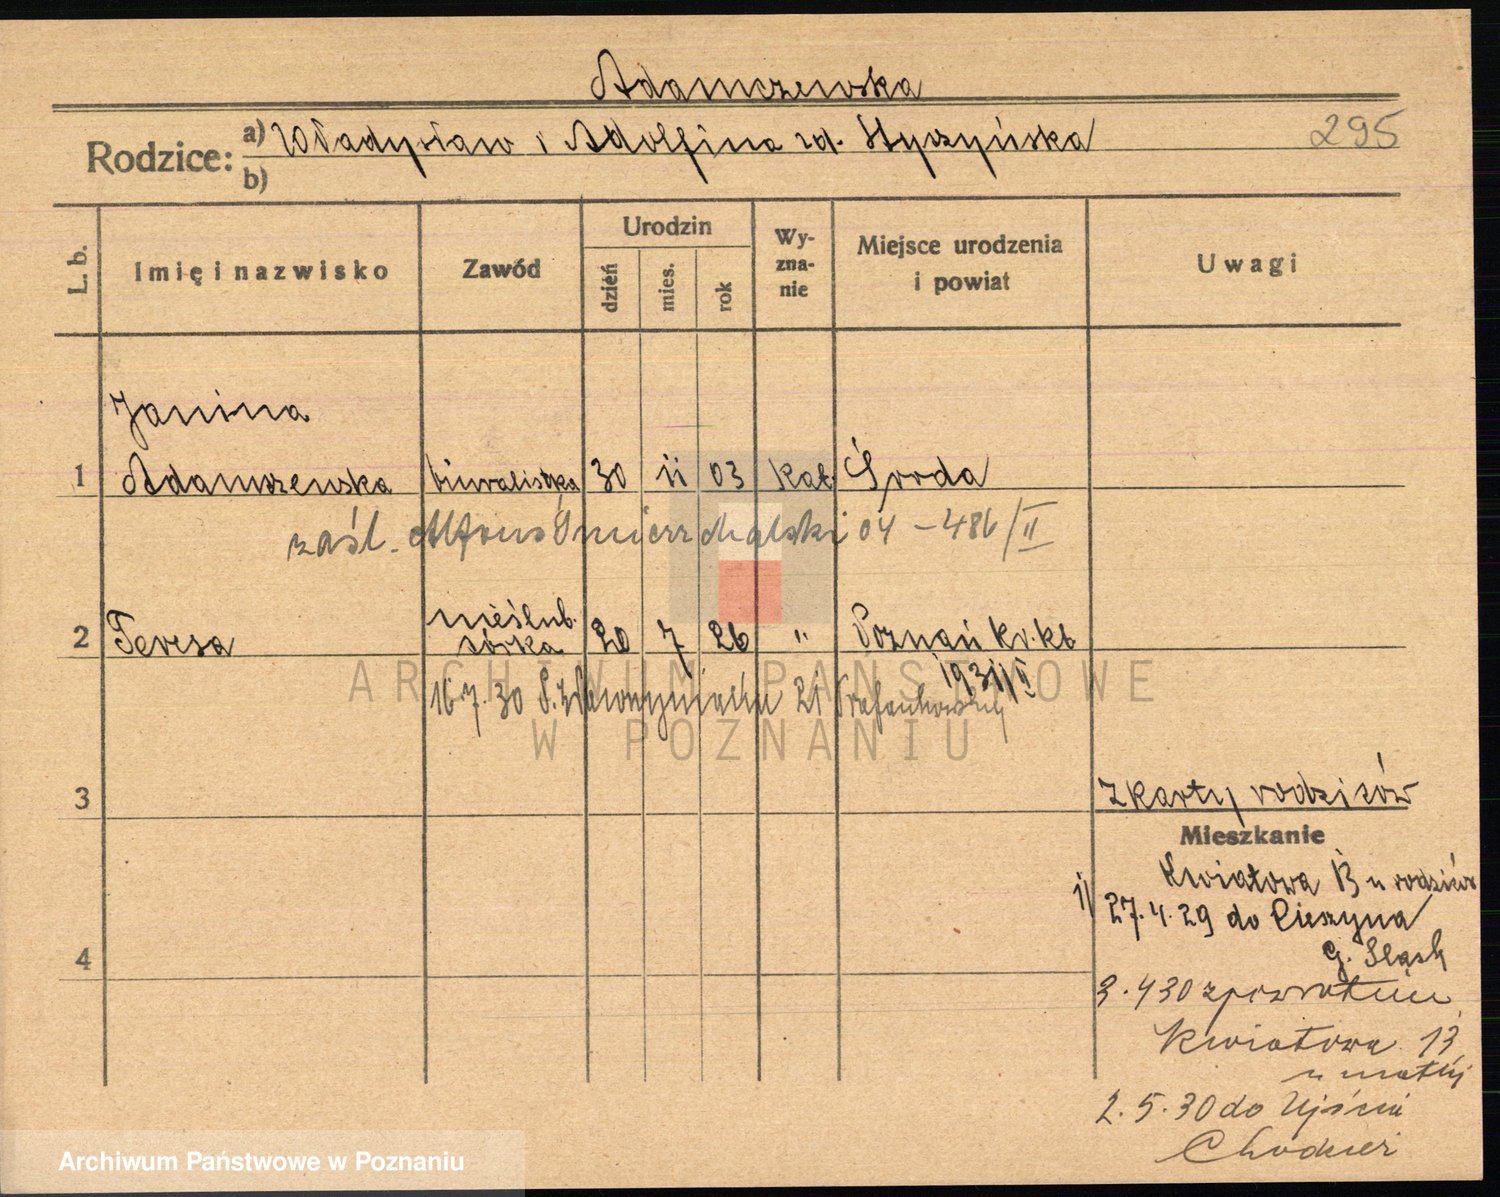 Adamczewska
Rodzice: a) Władysław i Adolfina zd. Styczyńska 295
b)
L. b. Imię i nazwisko Zawód Urodzin dzień mies. rok Wyznanie Miejsce urodzenia i powiat Uwagi
Janina
1 Adamczewska biuralistka 30 11 03 kat. Środa
zaśl. Alfons Śmierzchalski 04 - 486/II
2 Teresa nieślub. córka 20 7 26 " Poznań kr. kb
1931/II
16.7.30 21
ARCHIWUM PAŃSTWOWE
W POZNANIU
3
z karty rodziców
Mieszkanie
Kwiatowa 13 u rodziców
1) 27.4.29 do Cieszyna
4
G. Śląsk
3.4 30 z powrotem
Kwiatowa 13
u matki
2.5.30 do Ujścia
Chodzież
Archiwum Państwowe w Poznaniu